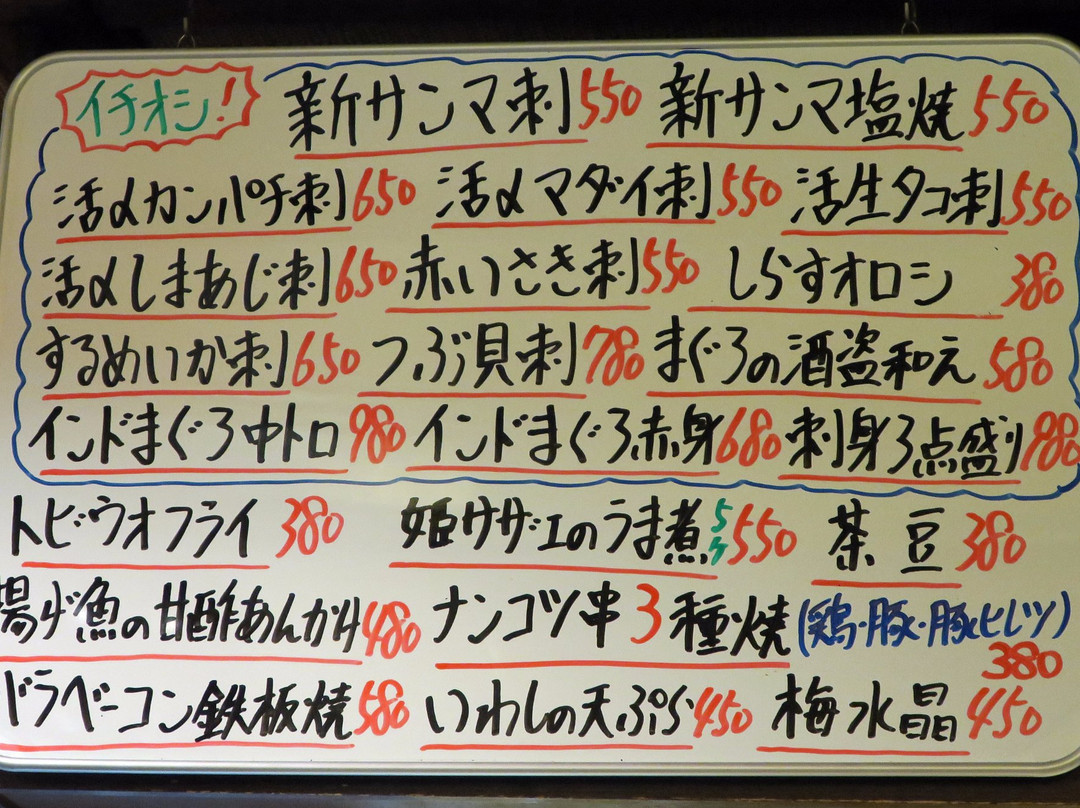 イチオシ! 新サンマ刺550 新サンマ塩焼550
活〆カンパチ刺650 活〆マダイ刺550 活生タコ刺550
活〆しまあじ刺650 赤いさき刺550 しらすオロシ 380
するめいか刺650 つぶ貝刺780 まぐろの酒盗和え580
インドまぐろ中トロ980 インドまぐろ赤身680 刺身3点盛り980
トビウオフライ380 姫サザエのうま煮5ケ550 茶豆380
揚げ魚の甘酢あんかけ480 ナンコツ串3種焼(鶏・豚・豚ヒレツ)
380
ドラベーコン鉄板焼580 いわしの天ぷら450 梅水晶450